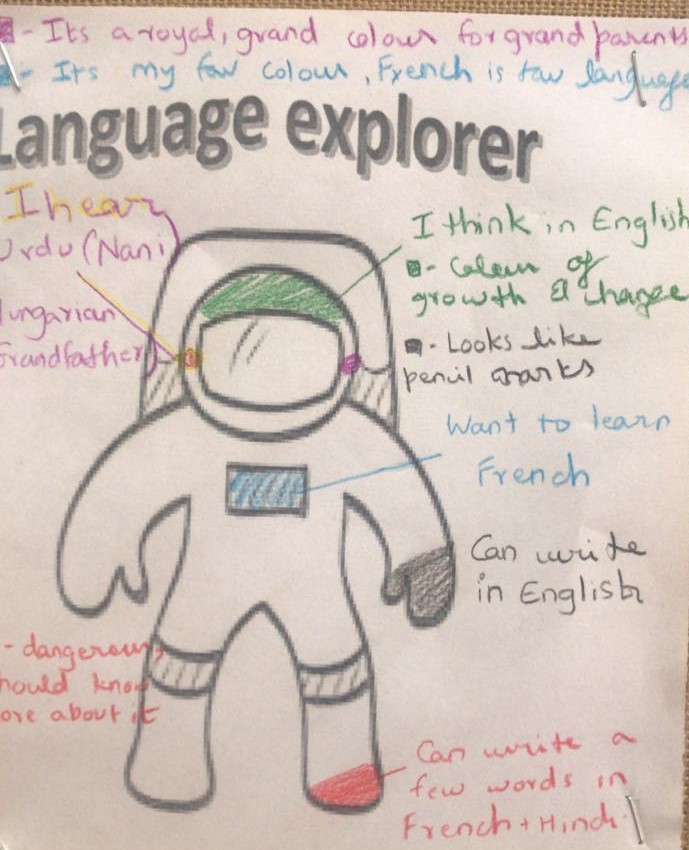 - Its a royal, grand colour for grandparents
- Its my fav colour, French is fav language
Language explorer
I hear
Urdu (Nani)
Hungarian
Grandfather)
I think in English
- Colour of
growth & change
- Looks like
pencil marks
Want to learn
French
Can write
in English
- dangerous,
should know
more about it
Can write a
few words in
French + Hindi